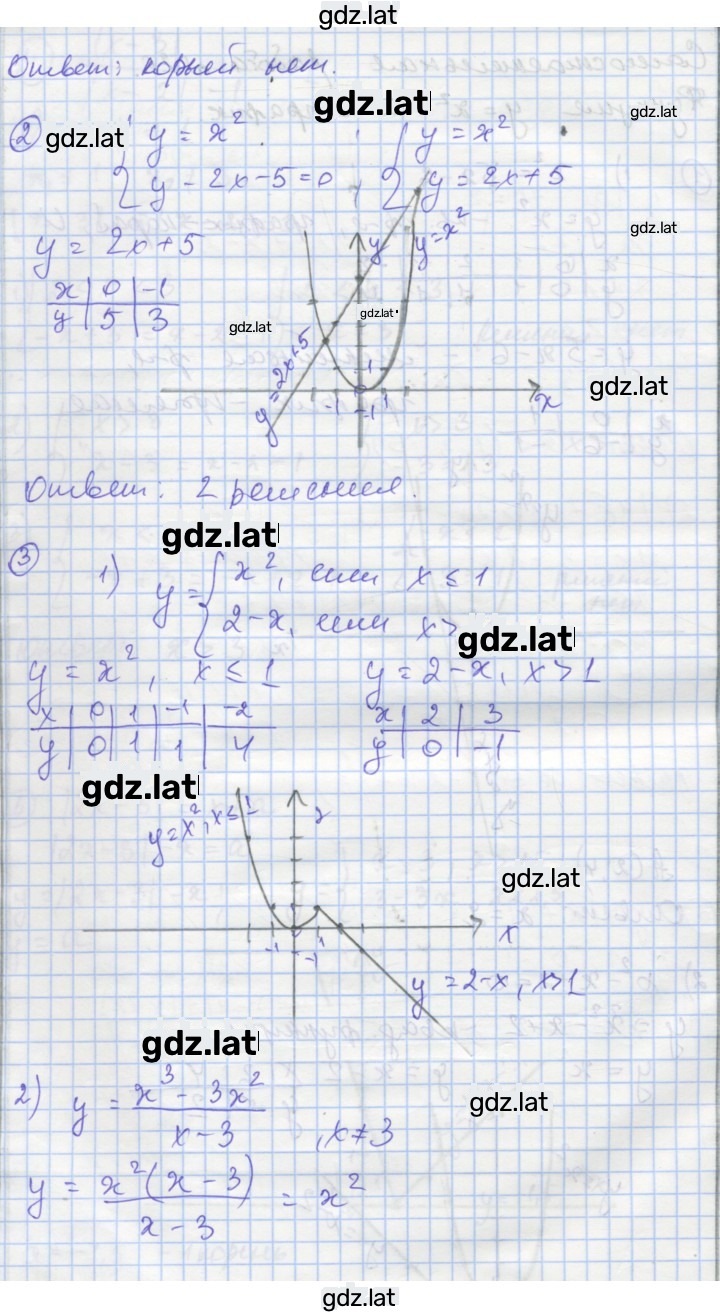 gdz.lat
Ответ: корней нет.
gdz.lat
gdz.lat
② gdz.lat { y = x² . { y = x²
{ y - 2x - 5 = 0 , { y = 2x + 5
gdz.lat
y = 2x + 5
x | 0 | -1
y | 5 | 3
y
y = x²
gdz.lat
gdz.lat
y = 2x + 5
1
-1 -1 1
x
gdz.lat
Ответ: 2 решения.
gdz.lat
③ 1) y = { x², если x ≤ 1
{ 2 - x, если x >
gdz.lat
y = x², x ≤ 1 y = 2 - x, x > 1
x | 0 | 1 | -1 | -2
y | 0 | 1 | 1 | 4
x | 2 | 3
y | 0 | -1
gdz.lat
y = x², x ≤ 1
y
gdz.lat
-1 -1 1
x
y = 2 - x, x > 1
gdz.lat
2) y = x³ - 3x² / x - 3 , x ≠ 3
gdz.lat
y = x²(x - 3) / x - 3 = x²
gdz.lat